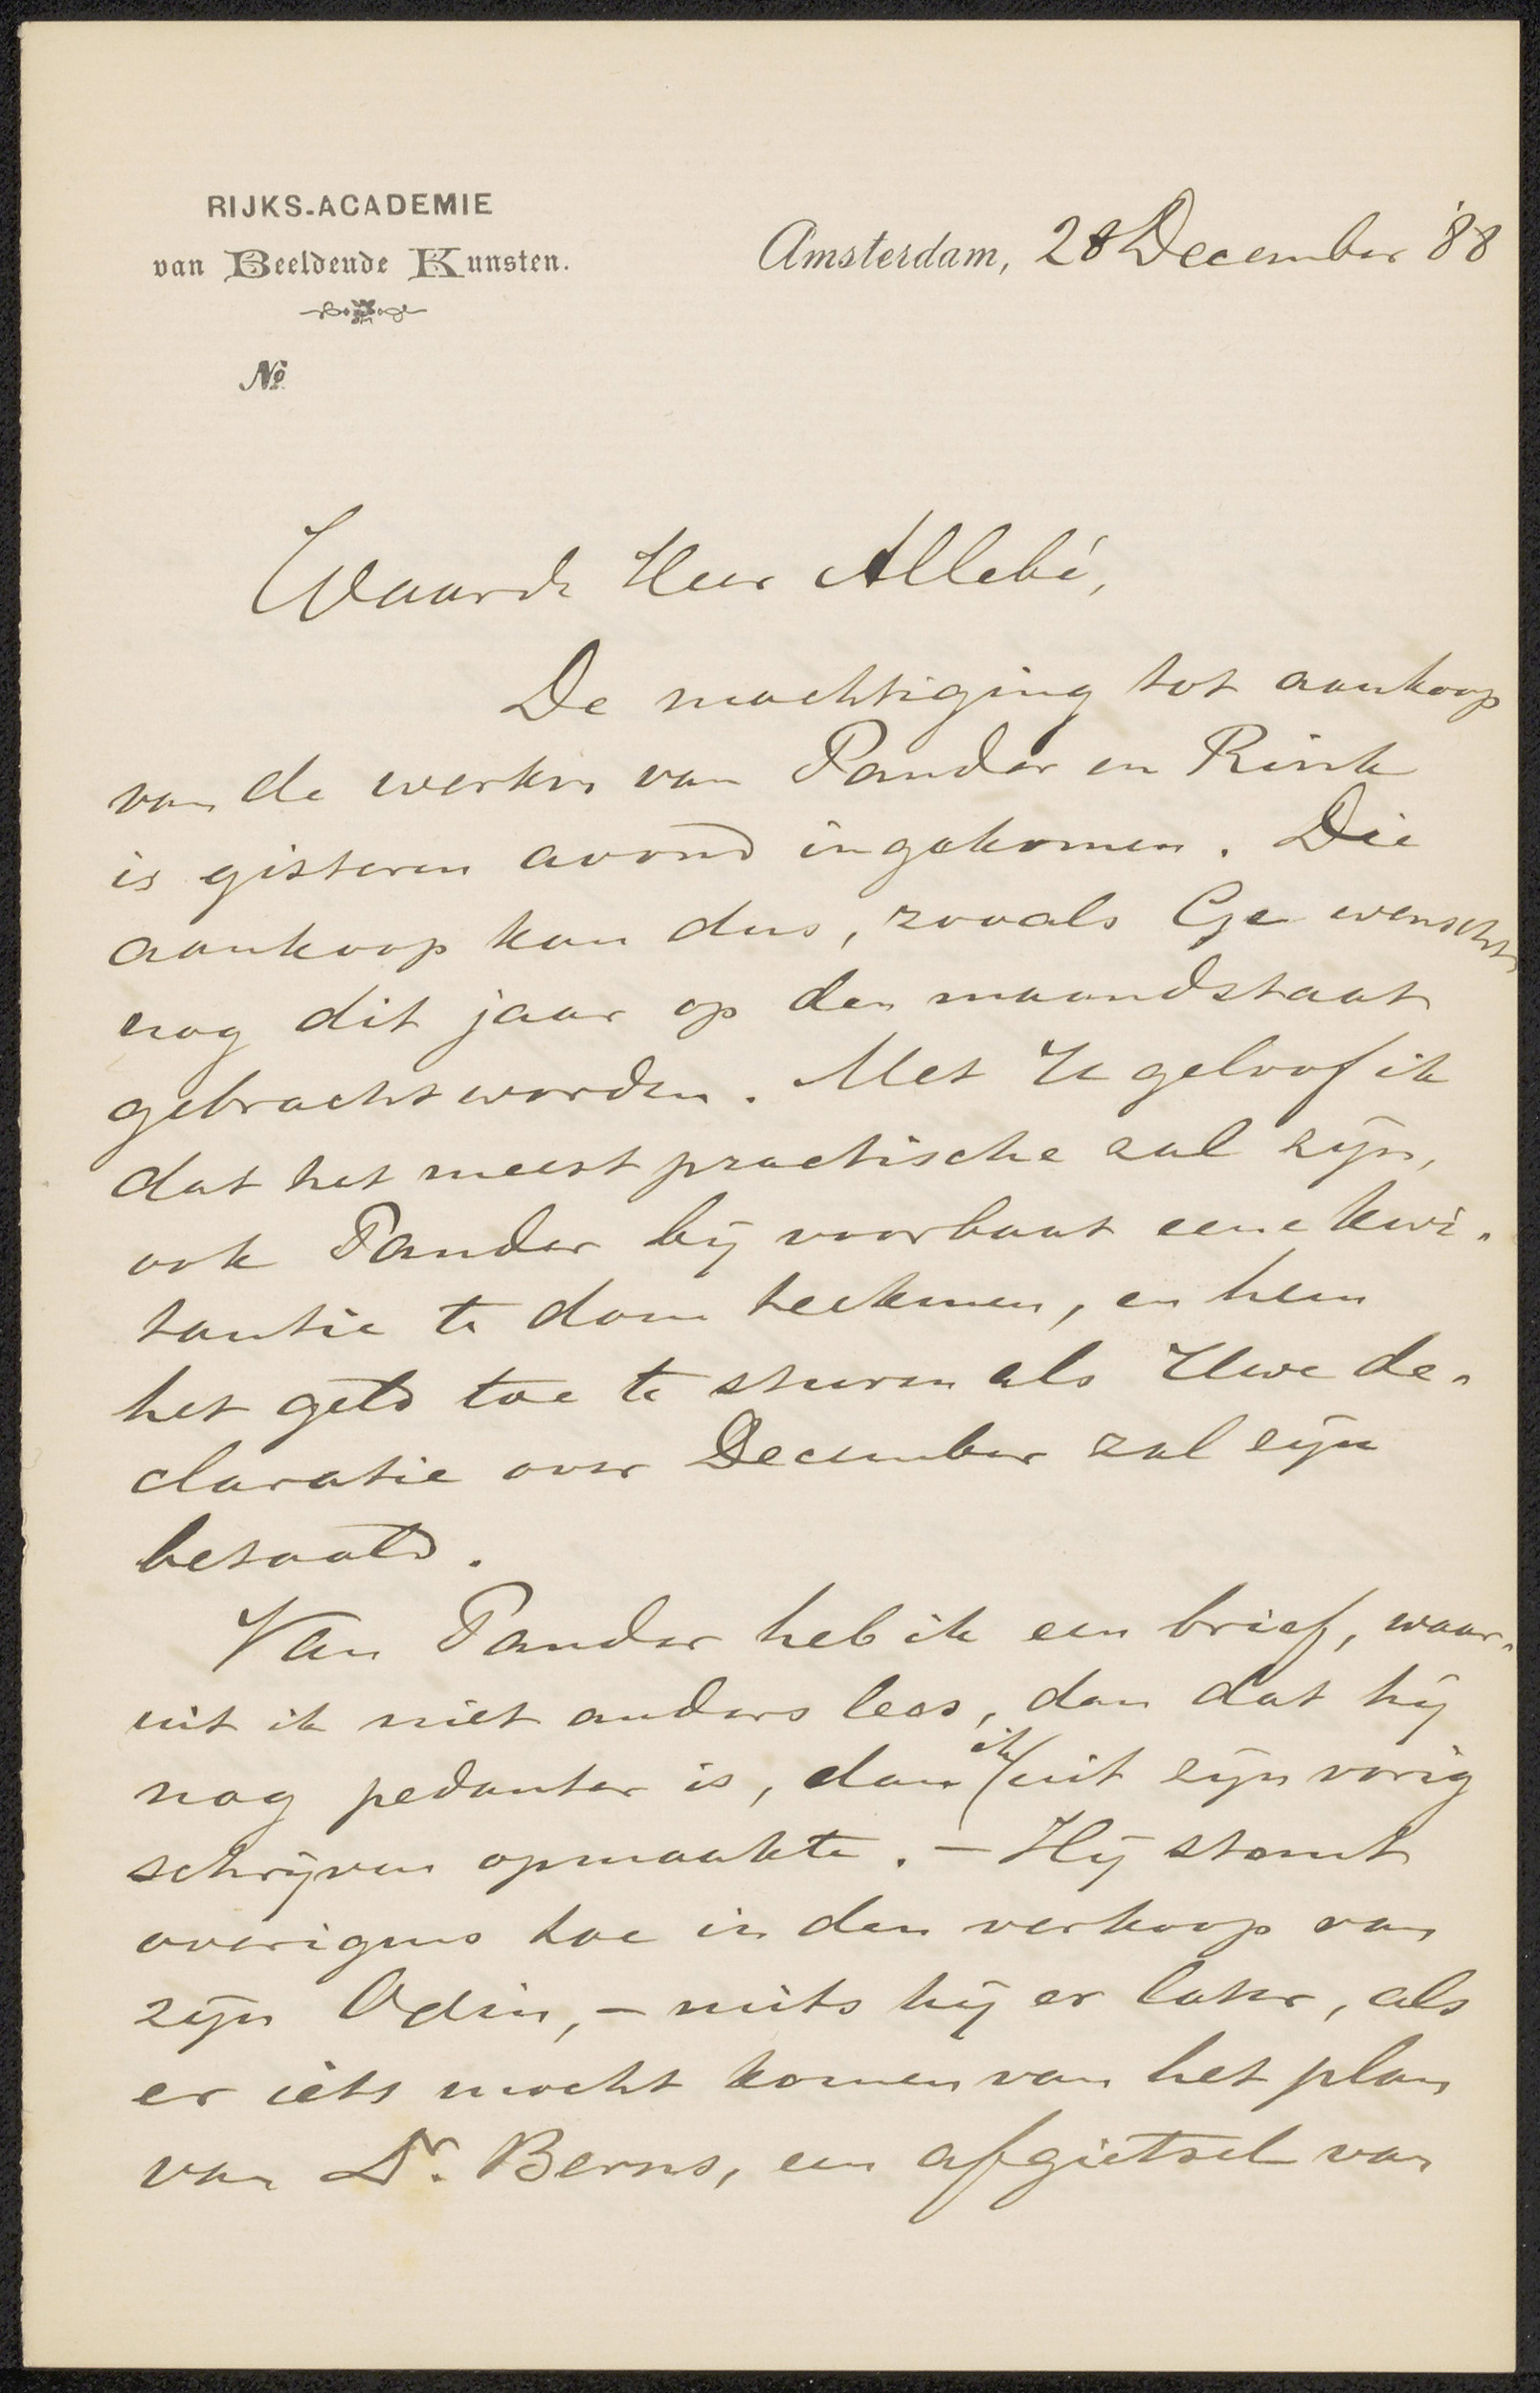 RIJKS-ACADEMIE
van Beeldende Kunsten.
Amsterdam, 28 December '88
No
Waarde Heer Allebé,
De machtiging tot aankoop
van de werken van Pander en Rink
is gisteren avond ingekomen. Die
aankoop kan dus, zooals Ge wenscht,
nog dit jaar op den maandstaat
gebracht worden. Met U geloof ik
dat het meest practische zal zijn,
ook Pander bij voorbaat eene kwi-
tantie te doen teekenen, en hem
het geld toe te sturen als Uwe de-
claratie over December zal zijn
betaald.
Van Pander heb ik een brief, waar-
uit ik niet anders lees, dan dat hij
nog pedanter is, dan ik uit zijn vorig
schrijven opmaakte. – Hij stemt
overigens toe in den verkoop van
zijn Odin, – mits hij er later, als
er iets mocht komen van het plan
van Dr. Berns, een afgietsel van